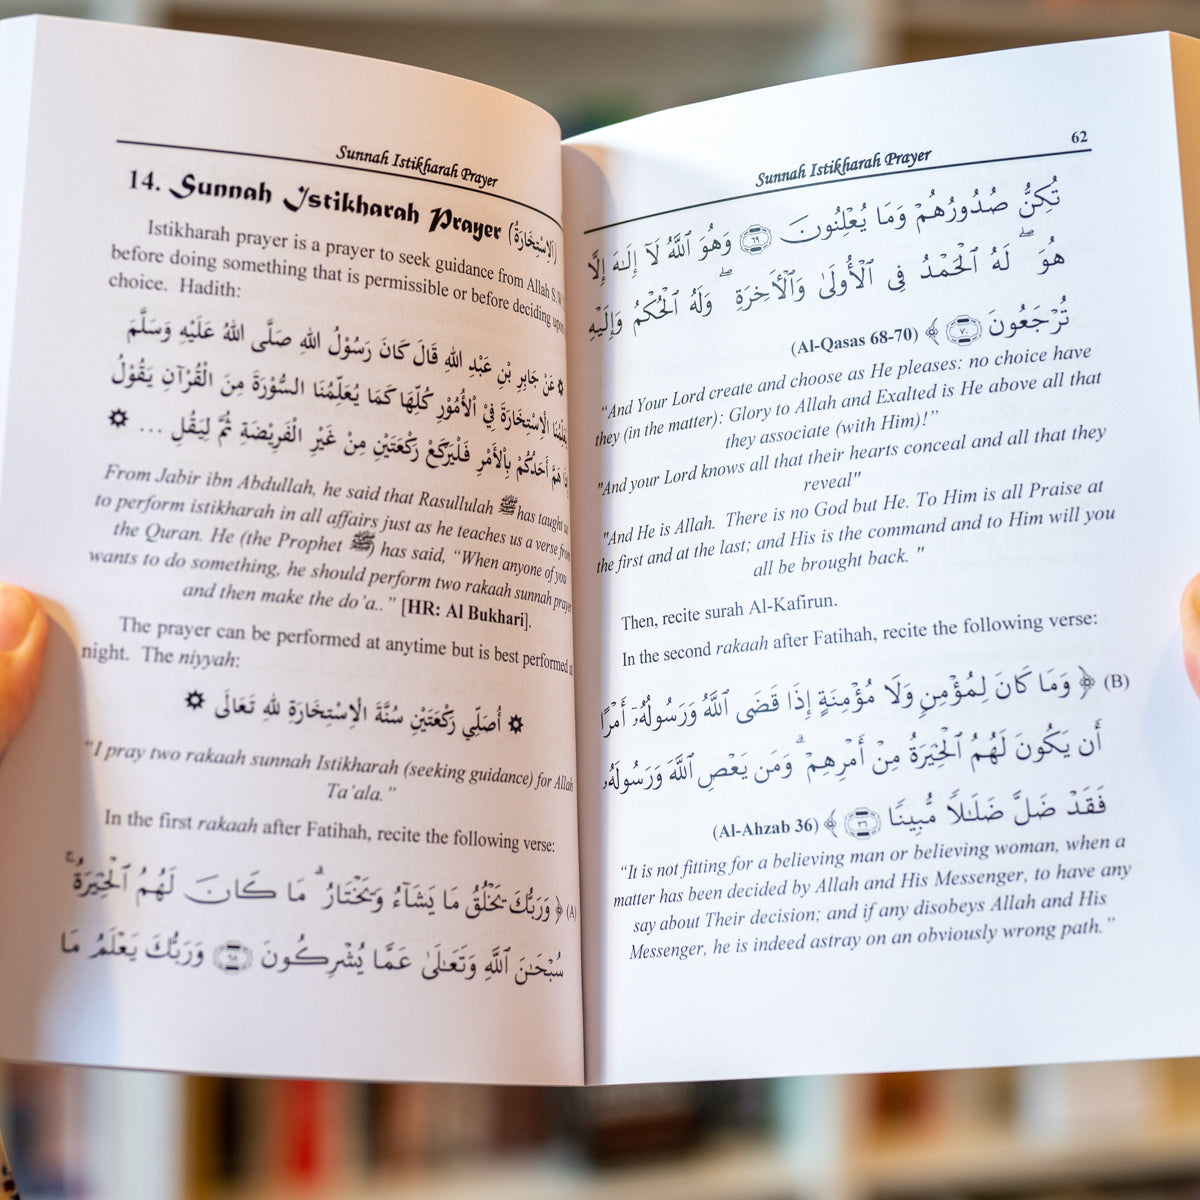 Sunnah Istikharah Prayer
14. Sunnah Istikharah Prayer (الاِسْتِخَارَةُ)
Istikharah prayer is a prayer to seek guidance from Allah S.W
before doing something that is permissible or before deciding upon
choice. Hadith:
عَنْ جَابِرِ بْنِ عَبْدِ اللهِ قَالَ كَانَ رَسُوْلُ اللهِ صَلَّى اللهُ عَلَيْهِ وَسَلَّمَ
يُعَلِّمُنَا الْاِسْتِخَارَةَ فِيْ الْأُمُوْرِ كُلِّهَا كَمَا يُعَلِّمُنَا السُّوْرَةَ مِنَ الْقُرْآنِ يَقُوْلُ
إِذَا هَمَّ أَحَدُكُمْ بِالْأَمْرِ فَلْيَرْكَعْ رَكْعَتَيْنِ مِنْ غَيْرِ الْفَرِيْضَةِ ثُمَّ لِيَقُلِ ...
From Jabir ibn Abdullah, he said that Rasullulah ﷺ has taught us
to perform istikharah in all affairs just as he teaches us a verse from
the Quran. He (the Prophet ﷺ) has said, “When anyone of you
wants to do something, he should perform two rakaah sunnah prayer
and then make the do’a.. ” [HR: Al Bukhari].
The prayer can be performed at anytime but is best performed at
night. The niyyah:
أُصَلِّي رَكْعَتَيْنِ سُنَّةَ الْاِسْتِخَارَةِ للهِ تَعَالَى
“I pray two rakaah sunnah Istikharah (seeking guidance) for Allah
Ta’ala.”
In the first rakaah after Fatihah, recite the following verse:
(A) ﴿ وَرَبُّكَ يَخْلُقُ مَا يَشَآءُ وَيَخْتَارُ ۗ مَا كَانَ لَهُمُ ٱلْخِيَرَةُ ۚ
سُبْحَٰنَ ٱللَّهِ وَتَعَٰلَىٰ عَمَّا يُشْرِكُونَ ٦٨ وَرَبُّكَ يَعْلَمُ مَا
62
Sunnah Istikharah Prayer
تُكِنُّ صُدُورُهُمْ وَمَا يُعْلِنُونَ ٦٩ وَهُوَ ٱللَّهُ لَآ إِلَٰهَ إِلَّا
هُوَ ۖ لَهُ ٱلْحَمْدُ فِى ٱلْأُولَىٰ وَٱلْأَخِرَةِ ۖ وَلَهُ ٱلْحُكْمُ وَإِلَيْهِ
تُرْجَعُونَ ٧٠ ﴾ (Al-Qasas 68-70)
“And Your Lord create and choose as He pleases: no choice have
they (in the matter): Glory to Allah and Exalted is He above all that
they associate (with Him)!”
"And your Lord knows all that their hearts conceal and all that they
reveal"
"And He is Allah. There is no God but He. To Him is all Praise at
the first and at the last; and His is the command and to Him will you
all be brought back. "
Then, recite surah Al-Kafirun.
In the second rakaah after Fatihah, recite the following verse:
(B) ﴿ وَمَا كَانَ لِمُؤْمِنٍ وَلَا مُؤْمِنَةٍ إِذَا قَضَى ٱللَّهُ وَرَسُولُهُۥٓ أَمْرًا
أَن يَكُونَ لَهُمُ ٱلْخِيَرَةُ مِنْ أَمْرِهِمْ ۗ وَمَن يَعْصِ ٱللَّهَ وَرَسُولَهُۥ
فَقَدْ ضَلَّ ضَلَٰلًا مُّبِينًا ٣٦ ﴾ (Al-Ahzab 36)
“It is not fitting for a believing man or believing woman, when a
matter has been decided by Allah and His Messenger, to have any
say about Their decision; and if any disobeys Allah and His
Messenger, he is indeed astray on an obviously wrong path.”